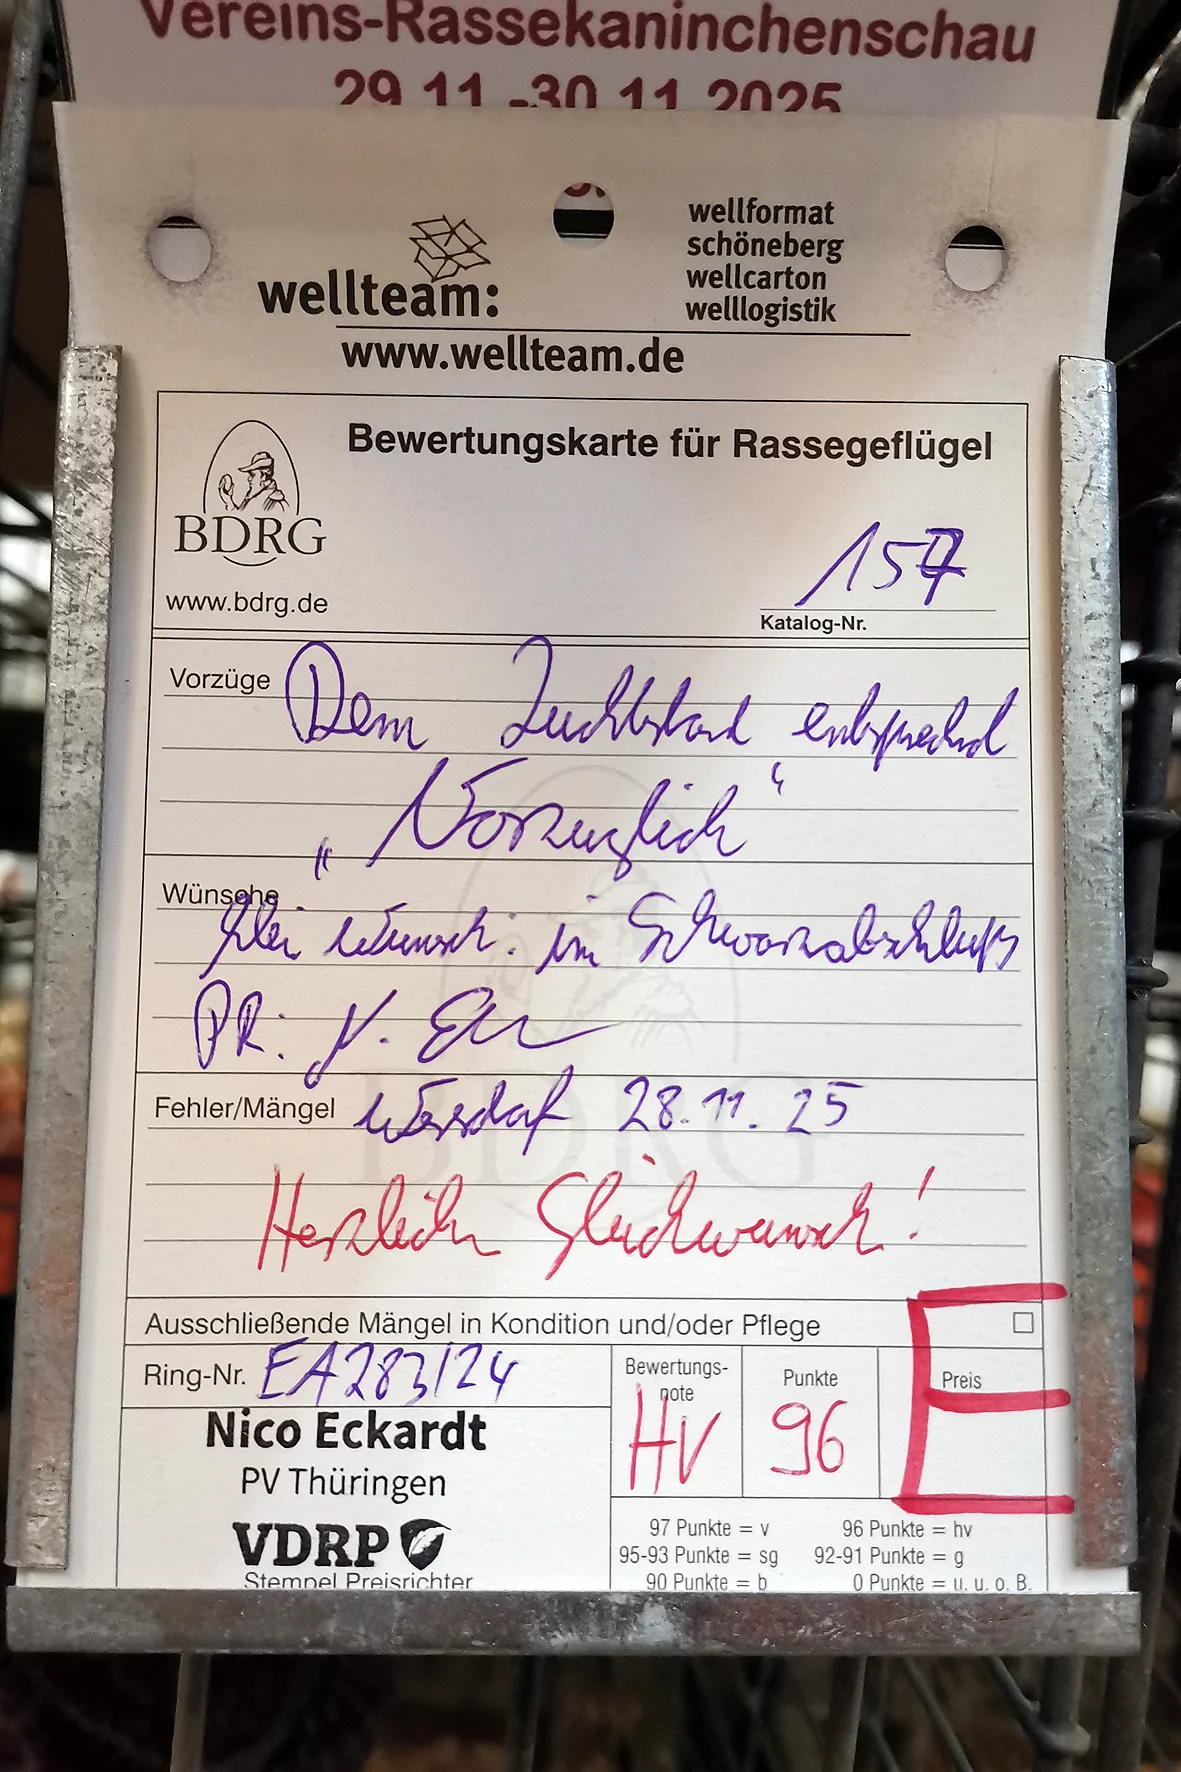 Vereins-Rassekaninchenschau
29.11.-30.11.2025
wellteam:
wellformat
schöneberg
wellcarton
welllogistik
www.wellteam.de
Bewertungskarte für Rassegeflügel
BDRG
www.bdrg.de
157
Katalog-Nr.
Vorzüge Dem Zuchtstand entsprechend
„Vorzüglich“
Wünsche
Wunsch: im Schwarzabschluß
PR: N.
Fehler/Mängel 28.11.25
Herzlich Glückwunsch!
Ausschließende Mängel in Kondition und/oder Pflege
Ring-Nr. EA283/24
Bewertungs-
note
HV
Punkte
96
Preis
E
Nico Eckardt
PV Thüringen
VDRP
Stempel Preisrichter
97 Punkte = v 96 Punkte = hv
95-93 Punkte = sg 92-91 Punkte = g
90 Punkte = b 0 Punkte = u. u. o. B.
BDRG